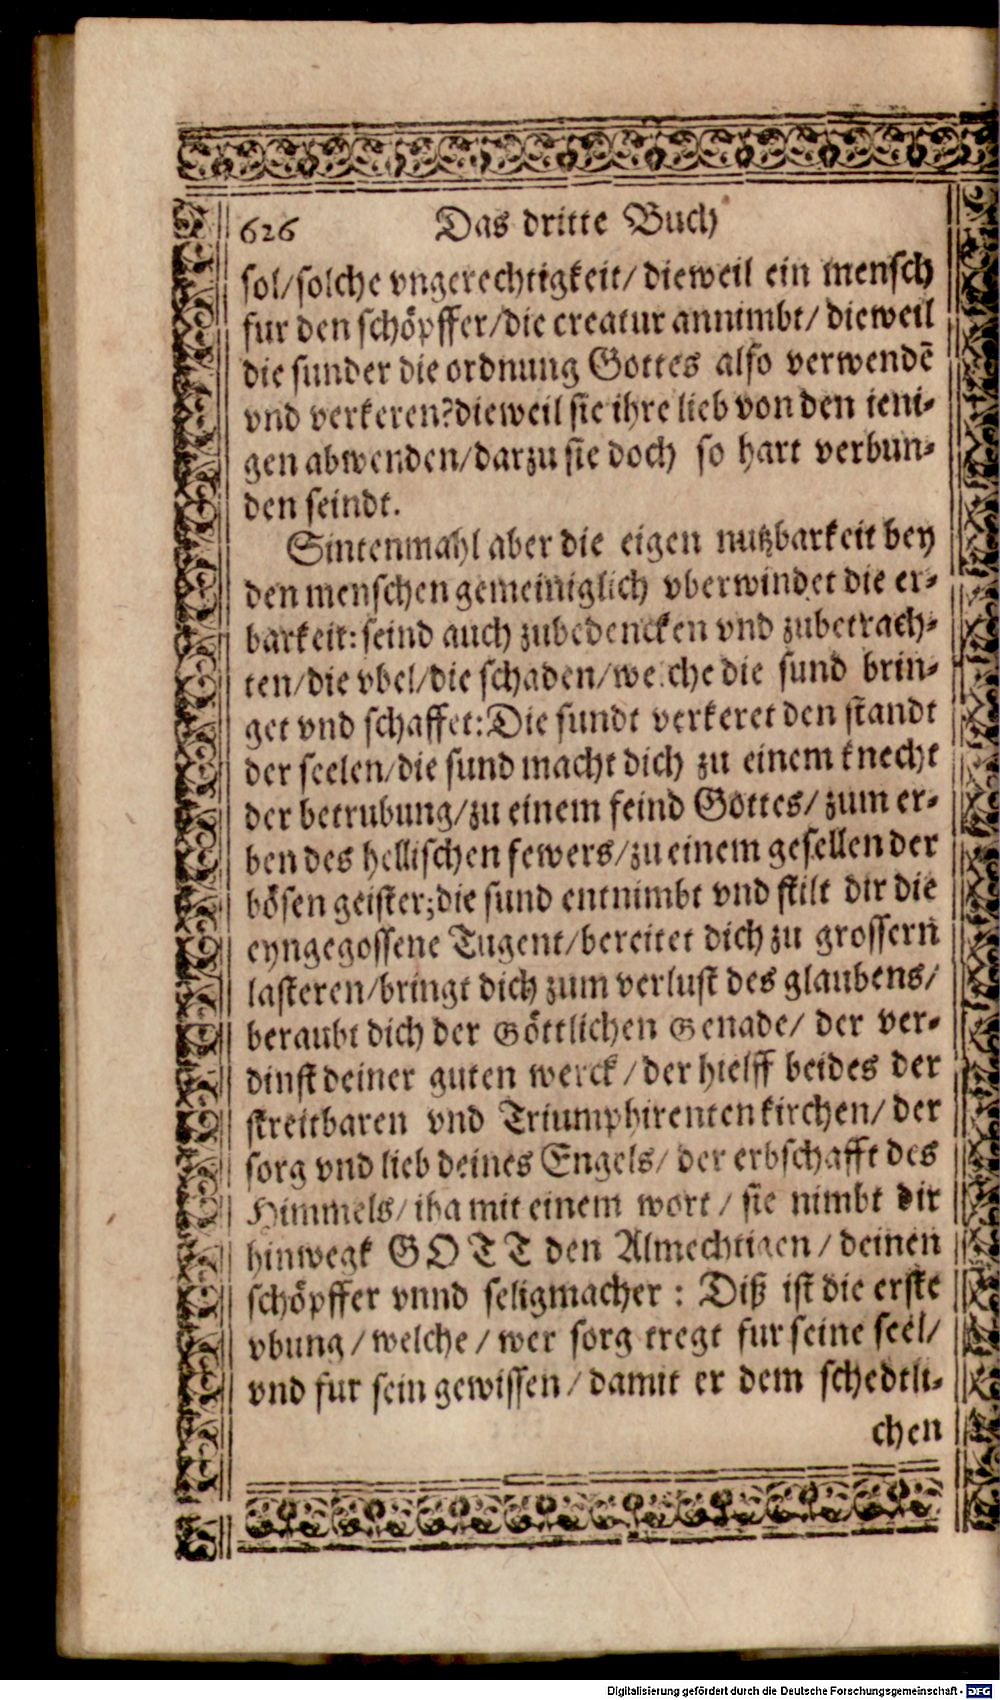 626 Das dritte Buch
sol/solche vngerechtigkeit/ dieweil ein mensch
fur den schöpffer/die creatur annimbt/ dieweil
die sunder die ordnung Gottes also verwendẽ
vnd verkeren?dieweil sie ihre lieb von den ieni-
gen abwenden/darzu sie doch so hart verbun-
den seindt.
Sintenmahl aber die eigen nutzbarkeit bey
den menschen gemeiniglich vberwindet die er-
barkeit: seind auch zubedencken vnd zubetrach-
ten/die vbel/die schaden/welche die sund brin-
get vnd schaffet: Die sundt verkeret den standt
der seelen/die sund macht dich zu einem knecht
der betrubung/zu einem feind Gottes/ zum er-
ben des hellischen fewers/zu einem gesellen der
bösen geister;die sund entnimbt vnd stilt dir die
eyngegossene Tugent/bereitet dich zu grossern
lasteren/bringt dich zum verlust des glaubens/
beraubt dich der Göttlichen Genade/ der ver-
dinst deiner guten werck/der hielff beides der
streitbaren vnd Triumphirenten kirchen/ der
sorg vnd lieb deines Engels/ der erbschafft des
Himmels/ iha mit einem wort/ sie nimbt dir
hinwegk GOTT den Almechtigen/ deinen
schöpffer vnnd seligmacher : Diß ist die erste
vbung/welche/wer sorg tregt fur seine seel/
vnd fur sein gewissen/damit er dem schedtli-
chen
Digitalisierung gefördert durch die Deutsche Forschungsgemeinschaft - DFG